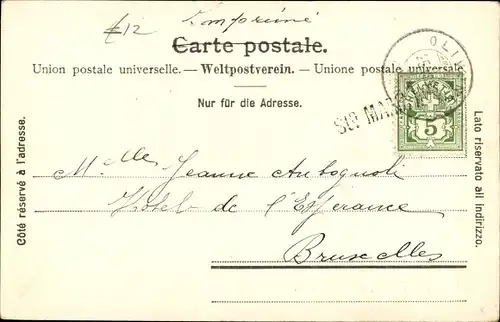 £12 Imprimé
Carte postale.
Union postale universelle. — Weltpostverein. — Unione postale universale.
Nur für die Adresse.
OLIV
HELVETIA
5
Côté réservé à l'adresse.
Lato riservato all indirizzo.
Mlles Jeanne
Hotel de l'Esperance
Bruxelles